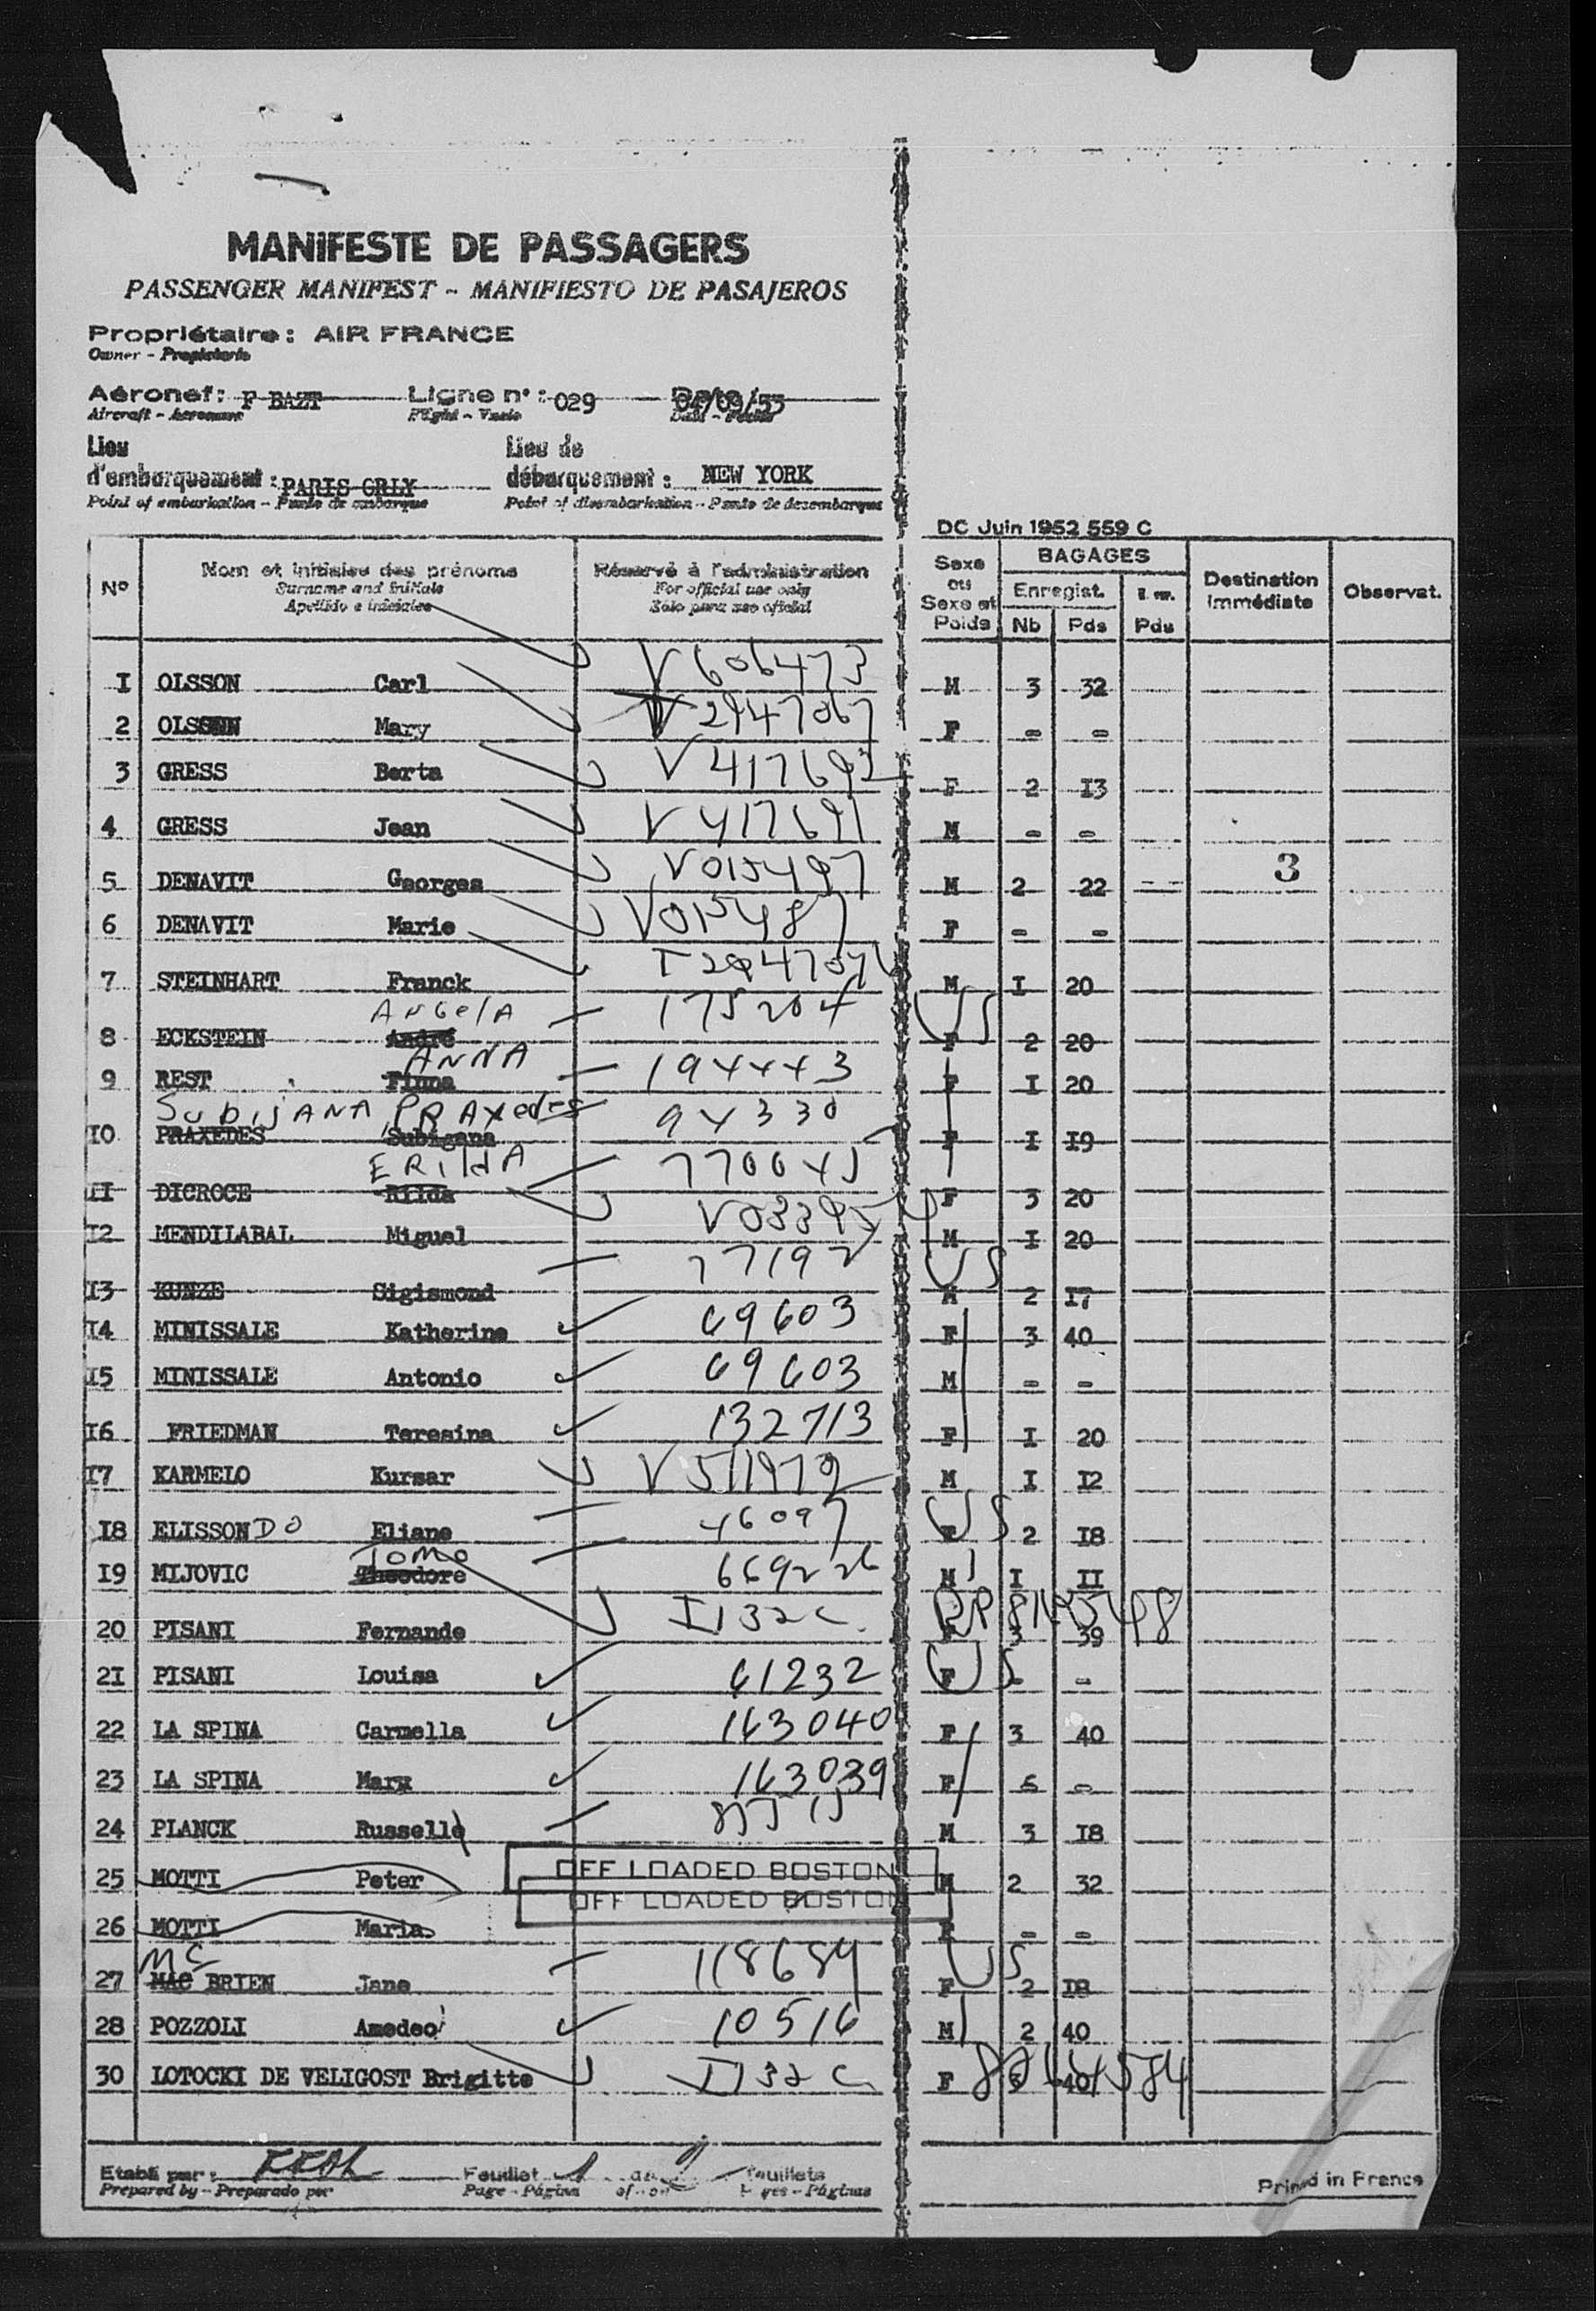 MANIFESTE DE PASSAGERS
PASSENGER MANIFEST - MANIFIESTO DE PASAJEROS
Propriétaire : AIR FRANCE
Owner - Propietario
Aéronef : F BAZT Ligne n° : 029 Date 04/09/55
Aircraft - Aeronave Flight - Vuelo Date - Fecha
Lieu d'embarquement : PARIS ORLY Lieu de débarquement : NEW YORK
Point of embarkation - Punto de embarque Point of disembarkation - Punto de desembarque
DC Juin 1952 559 C
N° Nom et initiales des prénoms Réservé à l'administration Sexe ou Sexe et Poids BAGAGES Destination immédiate Observat.
Surname and initials For official use only Enregist.
Apellido e iniciales Sólo para uso oficial Nb Pds Pds
I OLSSON Carl V 606473 M 3 32
2 OLSSON Mary 2947067 F - -
3 GRESS Berta V 417692 F 2 I3
4 GRESS Jean V 417691 M - -
5 DENAVIT Georges V015497 M 2 22 3
6 DENAVIT Marie V015487 F - -
7 STEINHART Franck M I 20
8 ECKSTEIN André Angela 175204 US F 2 20
9 REST Finna ANNA 194443 F I 20
SUBIJANA PRAxedes
I0 PRAXEDES Subigana 94330 F I I9
II DICROCE Rilda ERILdA 770045 F 3 20
I2 MENDILABAL Miguel M I 20
I3 KUNZE Sigismond 77192 US M 2 I7
I4 MINISSALE Katherine 69603 F 3 40
I5 MINISSALE Antonio 69603 M - -
I6 FRIEDMAN Teresina 132713 F I 20
I7 KARMELO Kursar V 511979 M I I2
I8 ELISSONDO Eliane 46097 US F 2 I8
I9 MIJOVIC Theodore TOMO 669226 M I II
20 PISANI Fernande I132C F 3 39
2I PISANI Louisa 61232 US F - -
22 LA SPINA Carmella 163040 F 3 40
23 LA SPINA Mary 163039 F - -
24 PLANCK Russell M 3 I8
25 MOTTI Peter OFF LOADED BOSTON M 2 32
26 MOTTI Maria OFF LOADED BOSTON F - -
27 MAC Mc BRIEN Jane 118684 US F 2 I8
28 POZZOLI Amedeo 10516 M 2 40
30 LOTOCKI DE VELIGOST Brigitte I132C F 40
Etabli par : Feuillet 1 de 2 feuillets
Prepared by - Preparado por Page - Página of - on Pages - Páginas
Printed in France